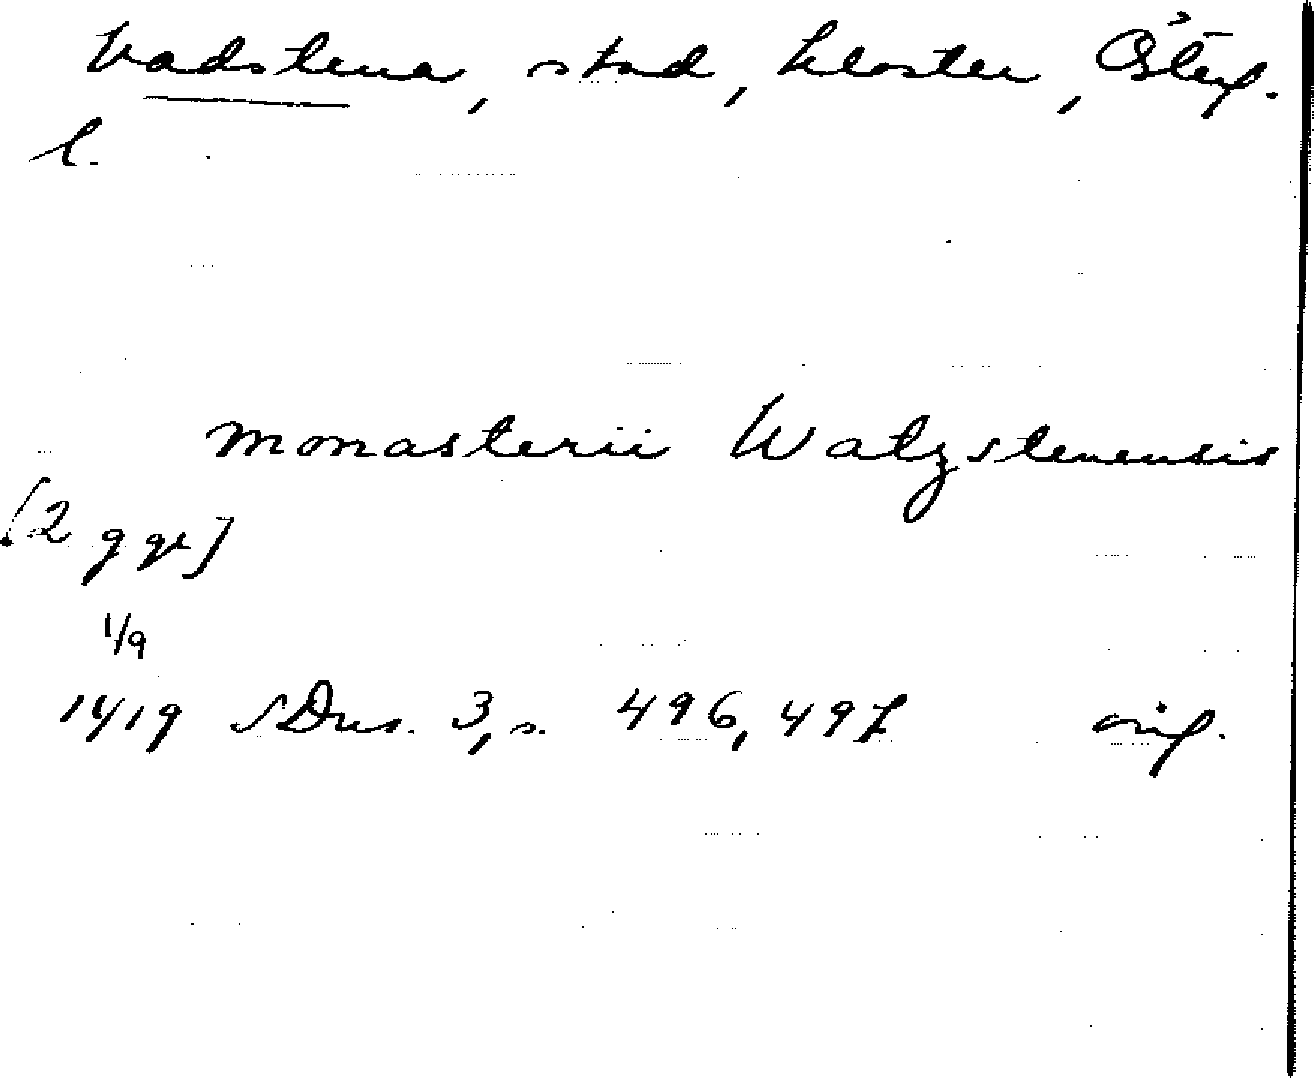 Vadstena, stad, kloster, Österg.
l.
monasterii Watzstenensis
[2 ggr]
1/9
1419 SDns. 3, s. 496, 497 orig.